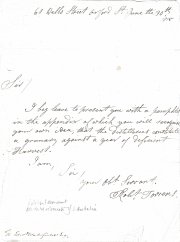 61 Wells Street Oxford St. June the 30th
Sir/
I beg leave to present you with a pamphlet
in the appendix of which you will recognise
your own idea, that the distilleries constitute
a granary against a year of deficient
Harvest.
I am,
Sir,
your Obt. Servant
Robt. Torrens.